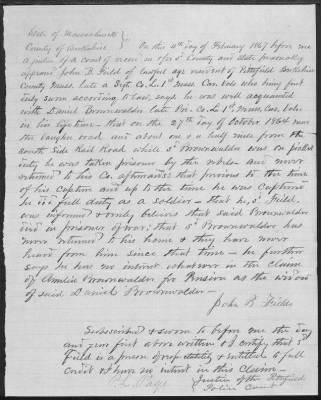 State of Massachusetts }
County of Berkshire } ss On this 4th day of February 1867 before me
a justice of a court of record in & for sd County and State personally
appeared John B. Field of lawful age resident of Pittsfield Berkshire
County Mass. late a Sergt Co. L. 1st Mass Cav. Vols who being first
duly sworn according to law, says he was well acquainted
with Daniel Brownwalder late Pri. Co. L 1st Mass. Cav. Vols
in his life time - that on the 27th day of October 1864 near
the Vaughn road and about one & a half mile from the
South Side Rail Road while sd Brownwalder was on picket
duty he was taken prisoner by the rebels and never
returned to his Co. afterwards: that previous to the time
of his Capture and up to the time he was Captured
he did full duty as a soldier - that he, sd Field,
was informed & verily believes that said Brownwalder
died in prisoner of war; that sd Brownwalder has
never returned to his home & they have never
heard from him since that time - he further
says he has no interest whatever in the claim
of Amelia Brownwalder for Pension as the widow
of said Daniel Brownwalder -
John B. Field
Subscribed & sworn to before me the day
and year first above written & I certify that sd
Field is a person of respectability & entitled to full
credit & I have no interest in this Claim -
Page Justice of the Pittsfield
Police Court